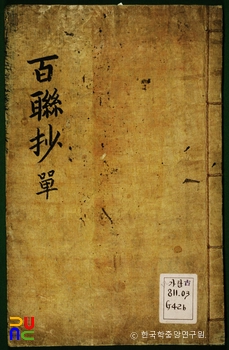 百聯抄 單
811.03
G426
© 한국학중앙연구원